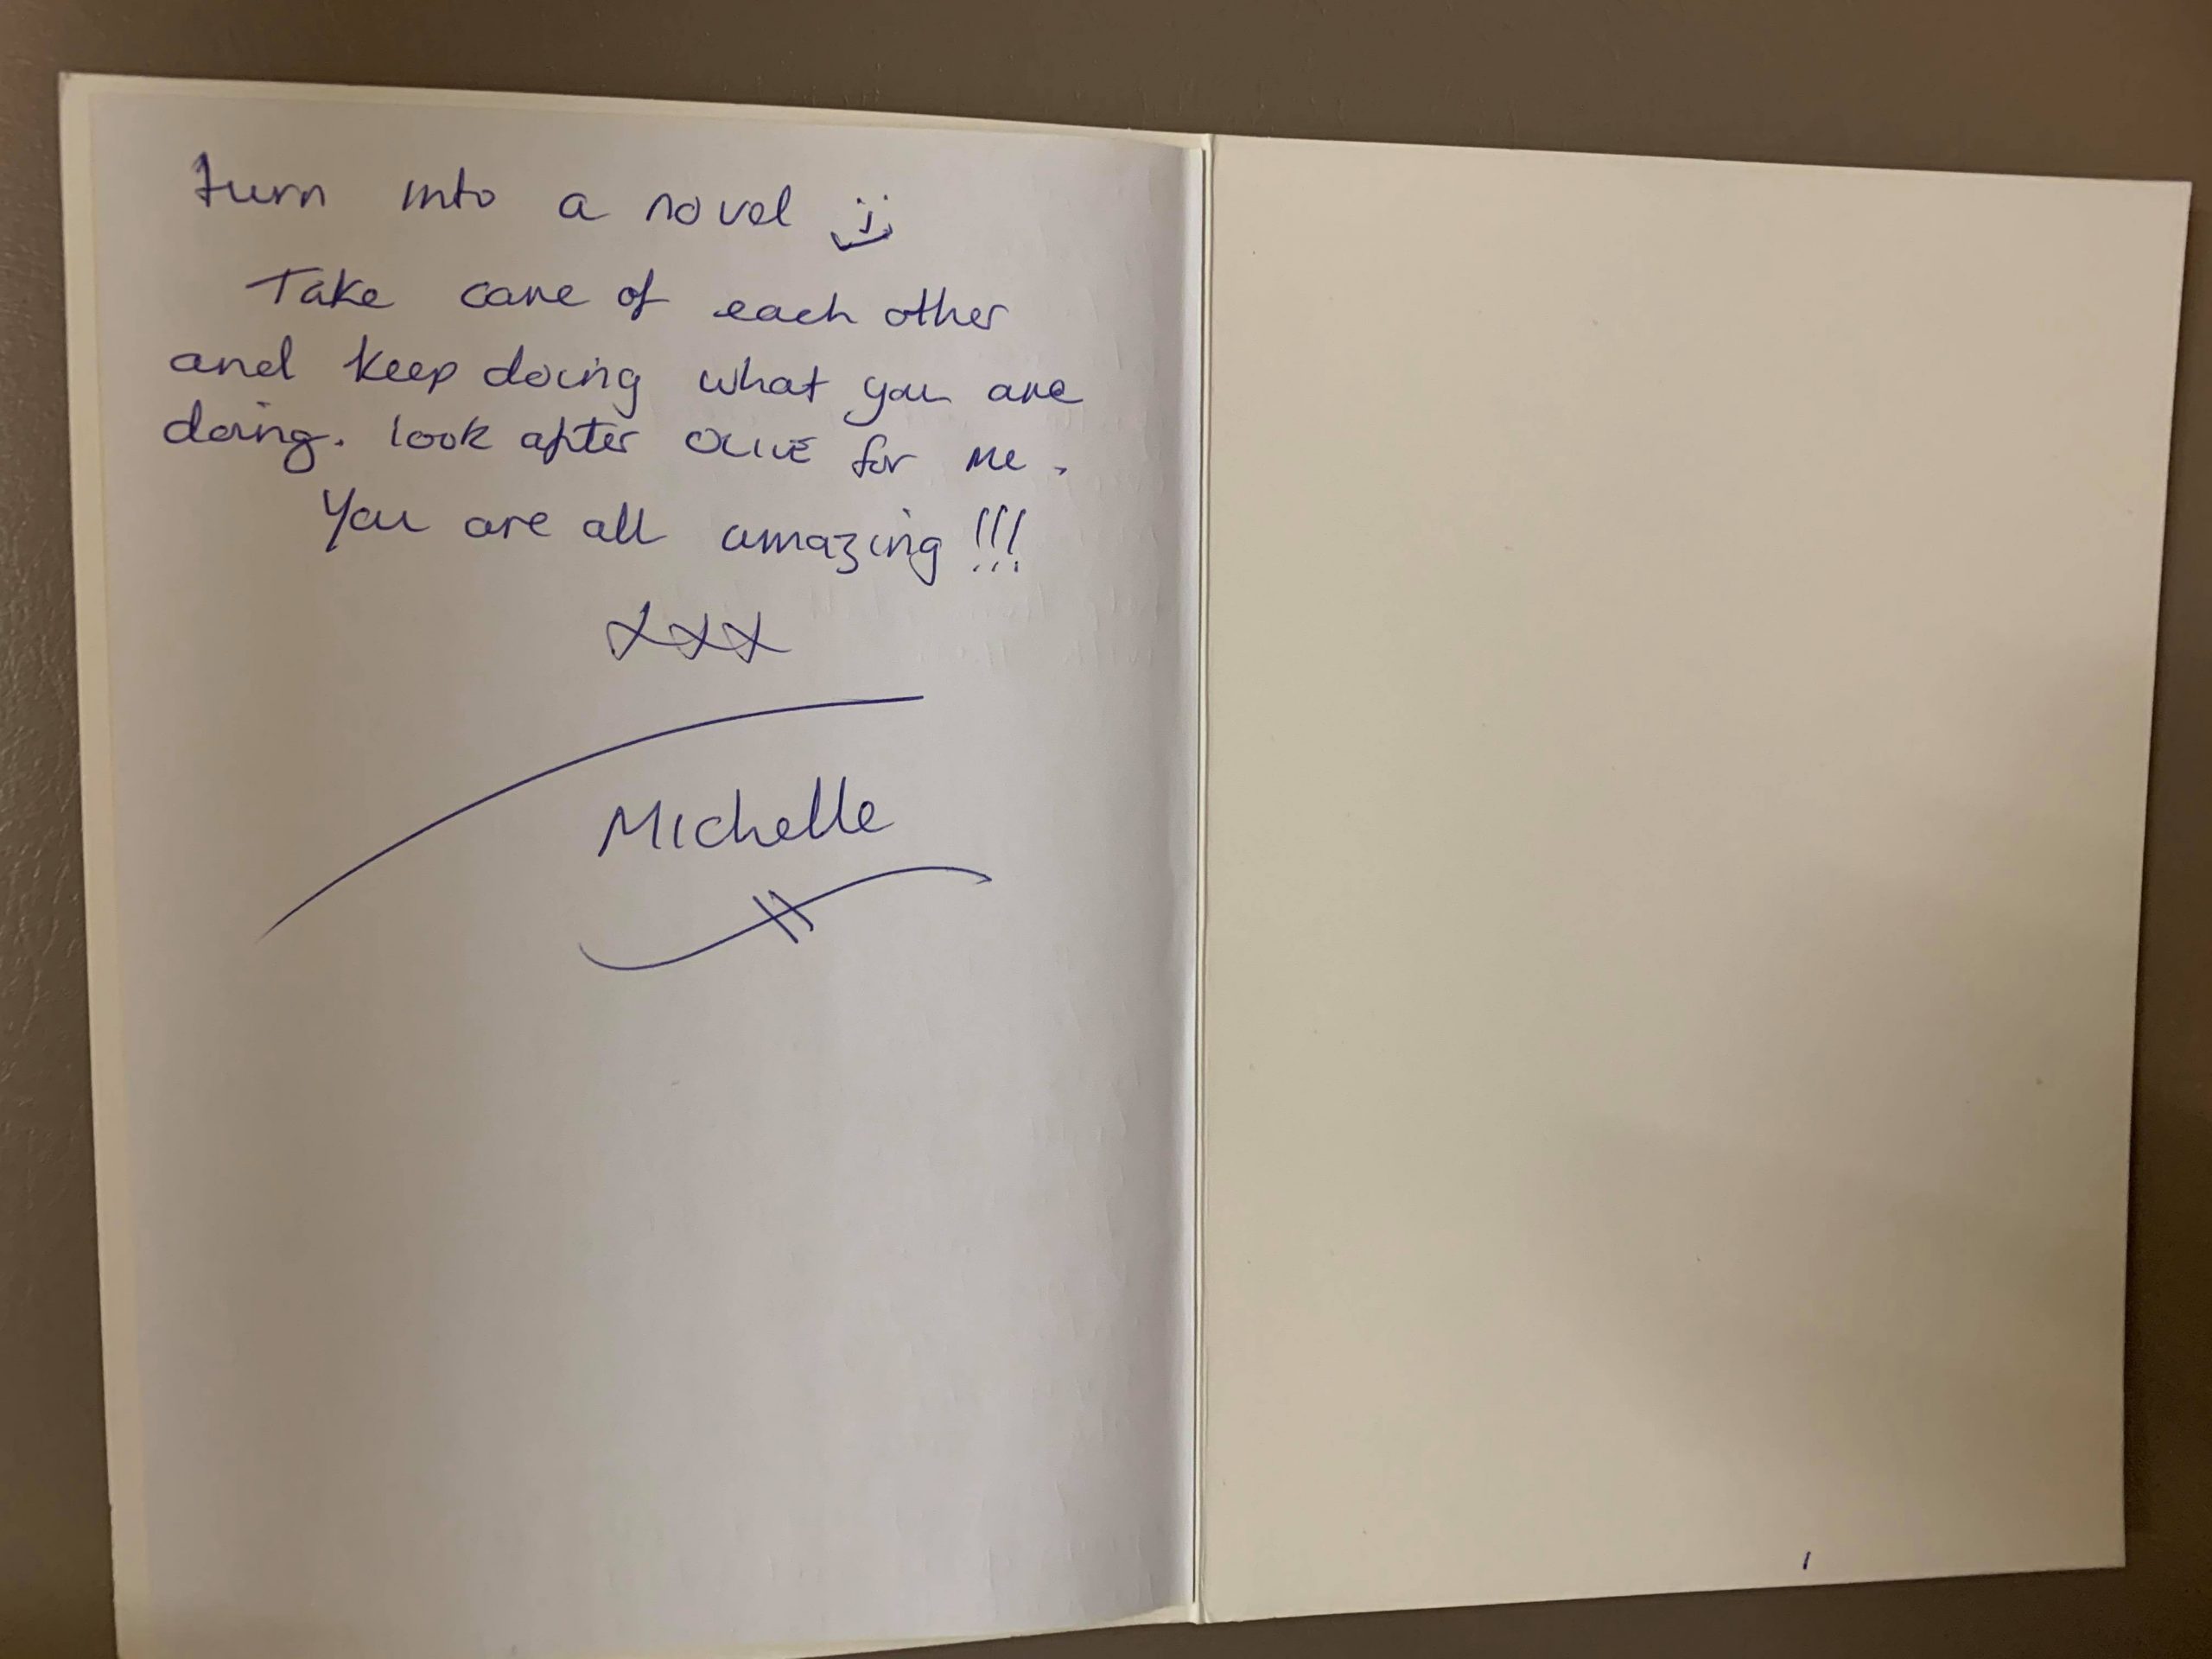 turn into a novel :)
Take care of each other
and keep doing what you are
doing. look after OLIVE for me.
You are all amazing !!!
xxx
Michelle